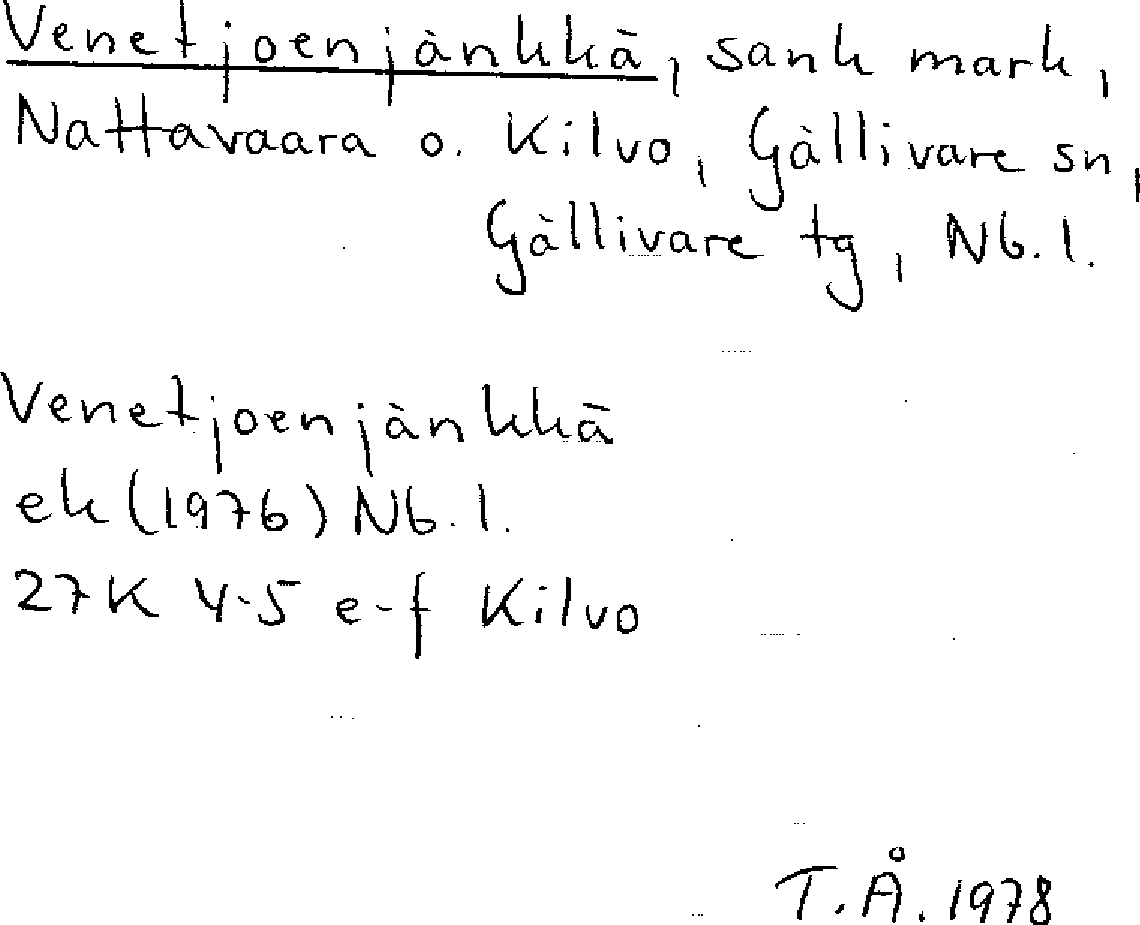 Venetjoenjänkkä, sank mark,
Nattavaara o. Kilvo, Gällivare sn,
Gällivare tg, Nb. l.
Venetjoenjänkkä
ek (1976) Nb. l.
27K 4-5 e-f Kilvo
T. Å. 1978